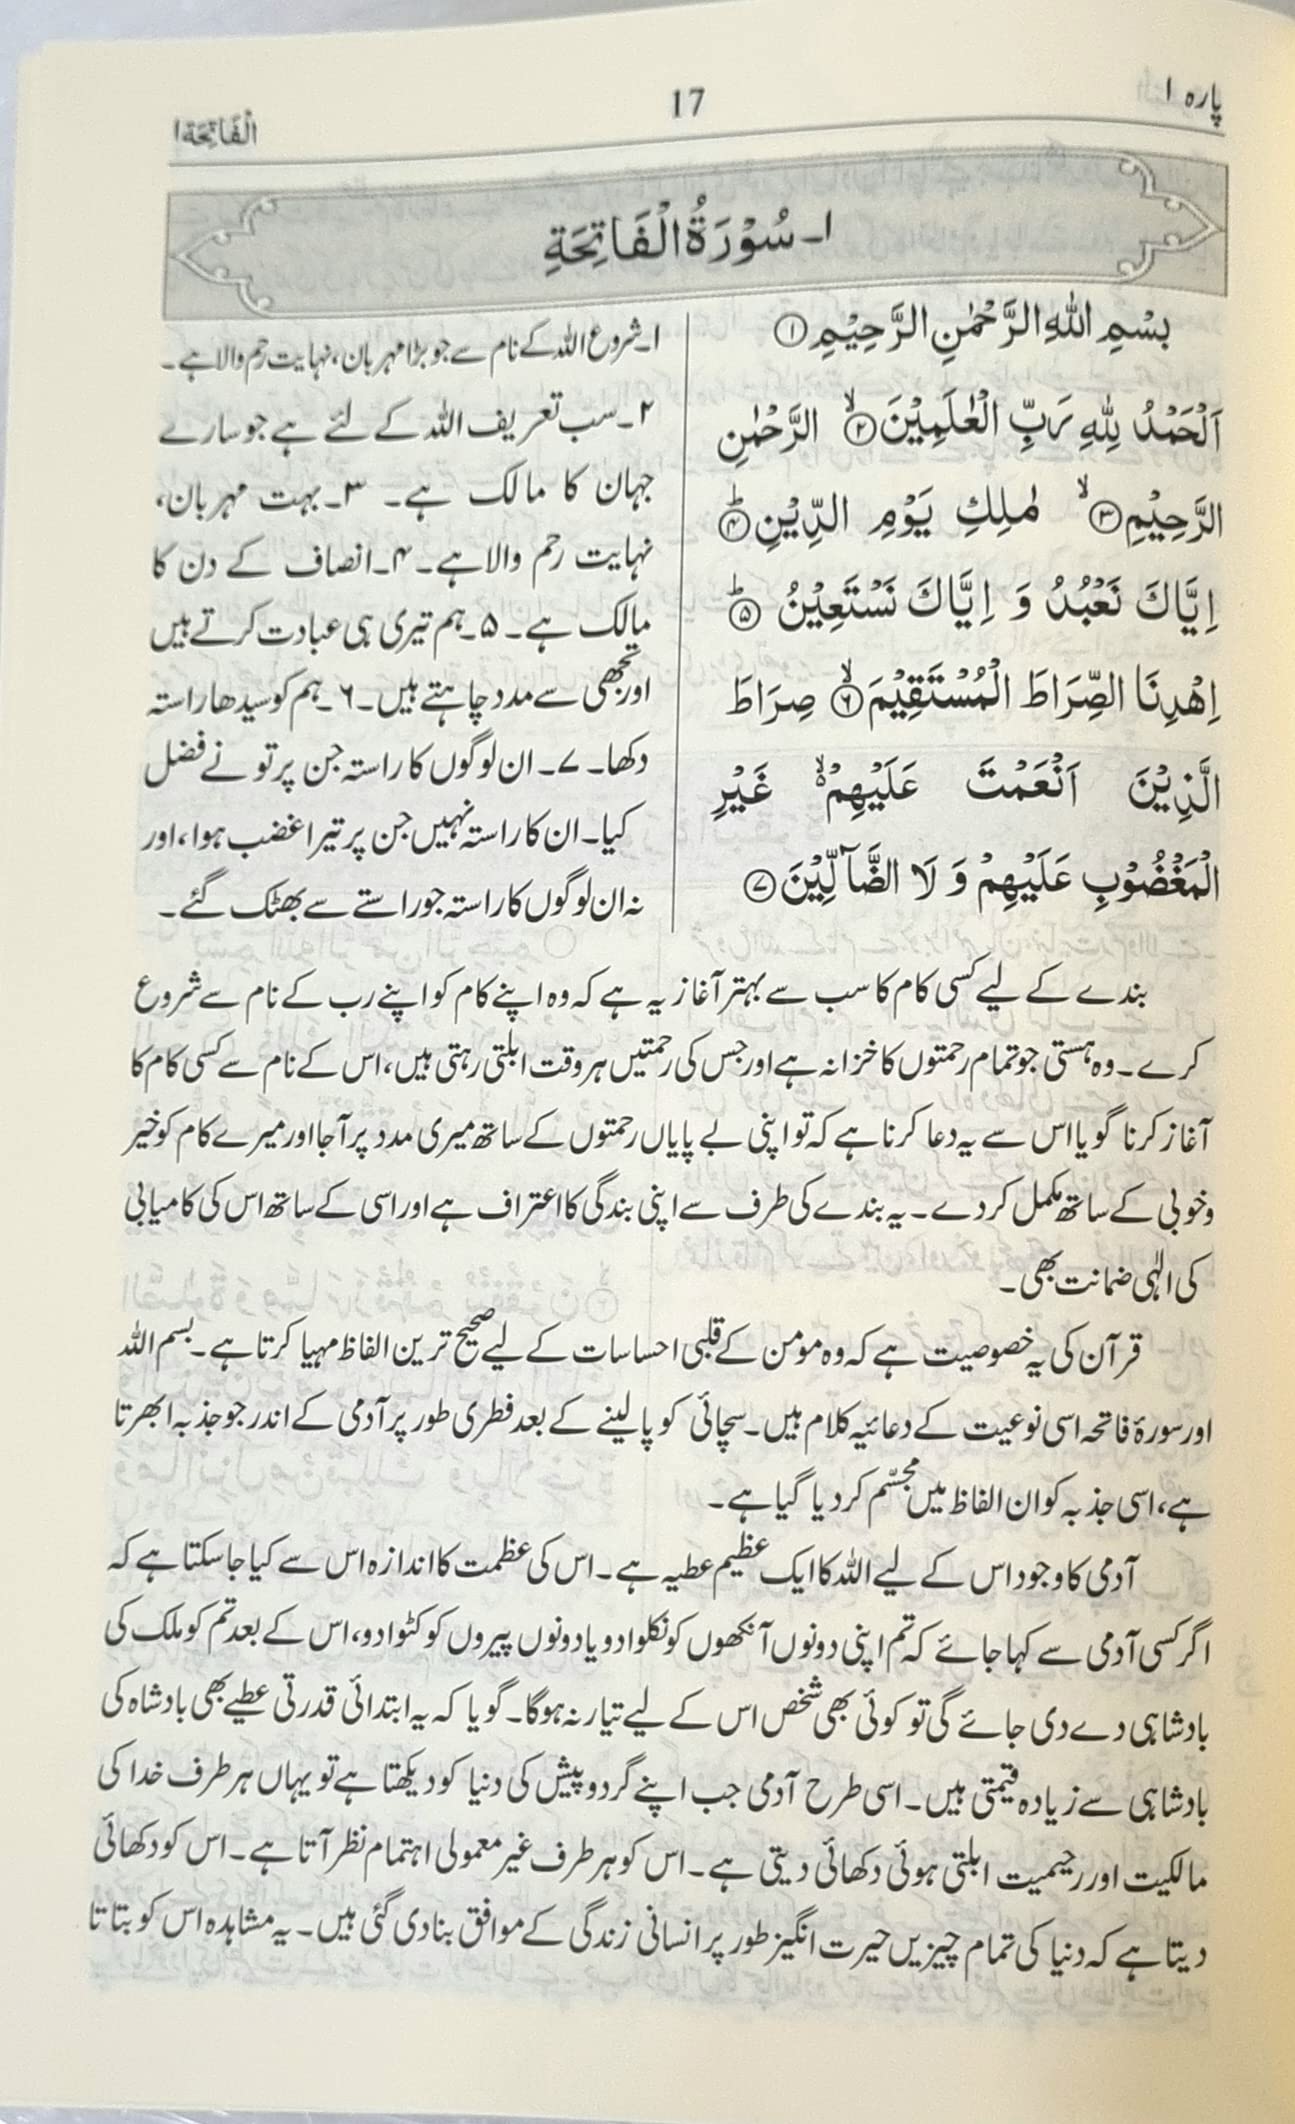 پارہ ۱
17
اَلْفَاتِحَة ۱
۱۔ سُوْرَةُ الْفَاتِحَةِ
بِسْمِ اللّٰهِ الرَّحْمٰنِ الرَّحِيْمِ ۝۱
اَلْحَمْدُ لِلّٰهِ رَبِّ الْعٰلَمِيْنَ ۝۲ۙ الرَّحْمٰنِ
الرَّحِيْمِ ۝۳ۙ مٰلِكِ يَوْمِ الدِّيْنِ ۝۴ؕ
اِيَّاكَ نَعْبُدُ وَ اِيَّاكَ نَسْتَعِيْنُ ۝۵ؕ
اِهْدِنَا الصِّرَاطَ الْمُسْتَقِيْمَ ۝۶ۙ صِرَاطَ
الَّذِيْنَ اَنْعَمْتَ عَلَيْهِمْ ۙ۬ غَيْرِ
الْمَغْضُوْبِ عَلَيْهِمْ وَ لَا الضَّآلِّيْنَ ۝۷
۱۔ شروع اللہ کے نام سے جو بڑا مہربان، نہایت رحم والا ہے۔
۲۔ سب تعریف اللہ کے لئے ہے جو سارے
جہان کا مالک ہے۔ ۳۔ بہت مہربان،
نہایت رحم والا ہے۔ ۴۔ انصاف کے دن کا
مالک ہے۔ ۵۔ ہم تیری ہی عبادت کرتے ہیں
اور تجھی سے مدد چاہتے ہیں۔ ۶۔ ہم کو سیدھا راستہ
دکھا۔ ۷۔ ان لوگوں کا راستہ جن پر تو نے فضل
کیا۔ ان کا راستہ نہیں جن پر تیرا غضب ہوا، اور
نہ ان لوگوں کا راستہ جو راستے سے بھٹک گئے۔
بندے کے لیے کسی کام کا سب سے بہتر آغاز یہ ہے کہ وہ اپنے کام کو اپنے رب کے نام سے شروع
کرے۔ وہ ہستی جو تمام رحمتوں کا خزانہ ہے اور جس کی رحمتیں ہر وقت ابلتی رہتی ہیں، اس کے نام سے کسی کام کا
آغاز کرنا گویا اس سے یہ دعا کرنا ہے کہ تو اپنی بے پایاں رحمتوں کے ساتھ میری مدد پر آجا اور میرے کام کو خیر
و خوبی کے ساتھ مکمل کردے۔ یہ بندے کی طرف سے اپنی بندگی کا اعتراف ہے اور اسی کے ساتھ اس کی کامیابی
کی الٰہی ضمانت بھی۔
قرآن کی یہ خصوصیت ہے کہ وہ مومن کے قلبی احساسات کے لیے صحیح ترین الفاظ مہیا کرتا ہے۔ بسم اللہ
اور سورۂ فاتحہ اسی نوعیت کے دعائیہ کلام ہیں۔ سچائی کو پالینے کے بعد فطری طور پر آدمی کے اندر جو جذبہ ابھرتا
ہے، اسی جذبہ کو ان الفاظ میں مجسّم کردیا گیا ہے۔
آدمی کا وجود اس کے لیے اللہ کا ایک عظیم عطیہ ہے۔ اس کی عظمت کا اندازہ اس سے کیا جاسکتا ہے کہ
اگر کسی آدمی سے کہا جائے کہ تم اپنی دونوں آنکھوں کو نکلوا دو یا دونوں پیروں کو کٹوا دو، اس کے بعد تم کو ملک کی
بادشاہی دے دی جائے گی تو کوئی بھی شخص اس کے لیے تیار نہ ہوگا۔ گویا کہ یہ ابتدائی قدرتی عطیے بھی بادشاہ کی
بادشاہی سے زیادہ قیمتی ہیں۔ اسی طرح آدمی جب اپنے گرد و پیش کی دنیا کو دیکھتا ہے تو یہاں ہر طرف خدا کی
مالکیت اور رحیمیت ابلتی ہوئی دکھائی دیتی ہے۔ اس کو ہر طرف غیر معمولی اہتمام نظر آتا ہے۔ اس کو دکھائی
دیتا ہے کہ دنیا کی تمام چیزیں حیرت انگیز طور پر انسانی زندگی کے موافق بنادی گئی ہیں۔ یہ مشاہدہ اس کو بتاتا